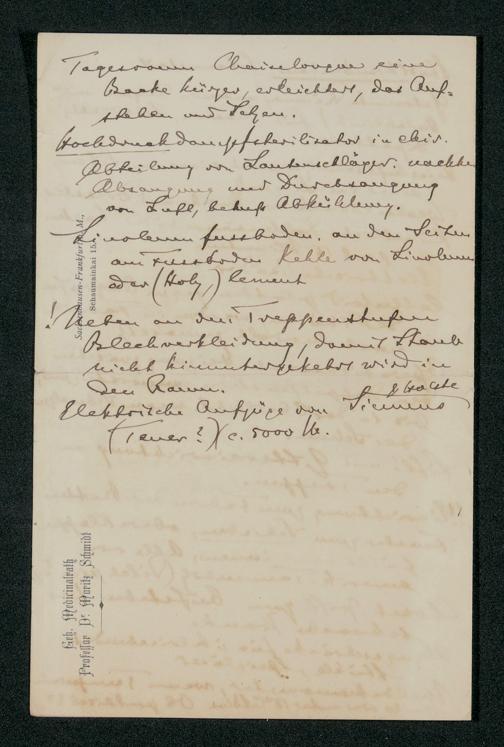 Tagesraum Chaiselongue eine
Backe kürzer, erleichtert, das Auf-
stehen und Setzen.
Hochdruckdampfsterilisator in chir.
Abteilung von Lautenschläger. nachher
Absaugung und Durchsaugung
von Luft, behufs Abkühlung.
Linoleumfussboden. an den Seiten
am Fussboden Kehle von Linoleum
oder (Holz) Cement
! Neben an den Treppenstufen
Blechverkleidung, damit Staub
nicht hinuntergekehrt wird in
den Raum.
Elektrische Aufzüge von Siemens
(Teuer?) c. 5000 M.
Sachsenhausen-Frankfurt a. M.,
Schaumainkai
Geh. Medicinalrath
Professor Dr. Moritz Schmidt